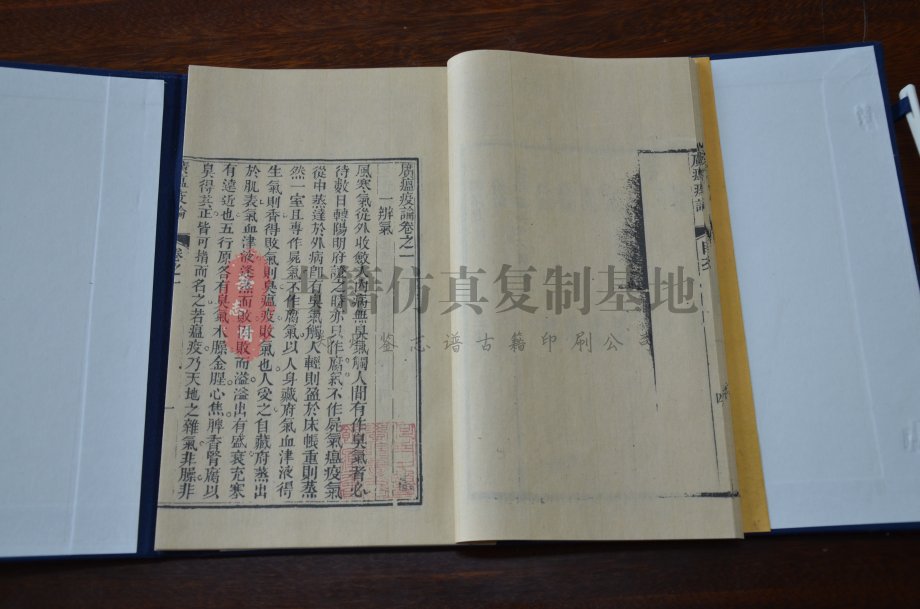 廣瘟疫論卷之一
一辨氣
風寒氣從外收斂入內病無臭氣觸人間有作臭氣者必
待數日轉陽明府證之時亦只作腐氣不作屍氣瘟疫氣
從中蒸達於外病即有臭氣觸人輕則盈於床帳重則蒸
然一室且專作屍氣不作腐氣以人身藏府氣血津液得
生氣則香得敗氣則臭瘟疫敗氣也人受之自藏府蒸出
於肌表氣血津液逢蒸而敗敗而溢溢出有盛衰充塞
有遠近也五行原各有臭氣木臊金腥心焦脾香腎腐以
臭得其正皆可指而名之若瘟疫乃天地之雜氣非臊非
廣瘟疫論
卷之一
一
廣瘟疫論
目次
四
古籍仿真复制基地
鉴志谱古籍印刷公